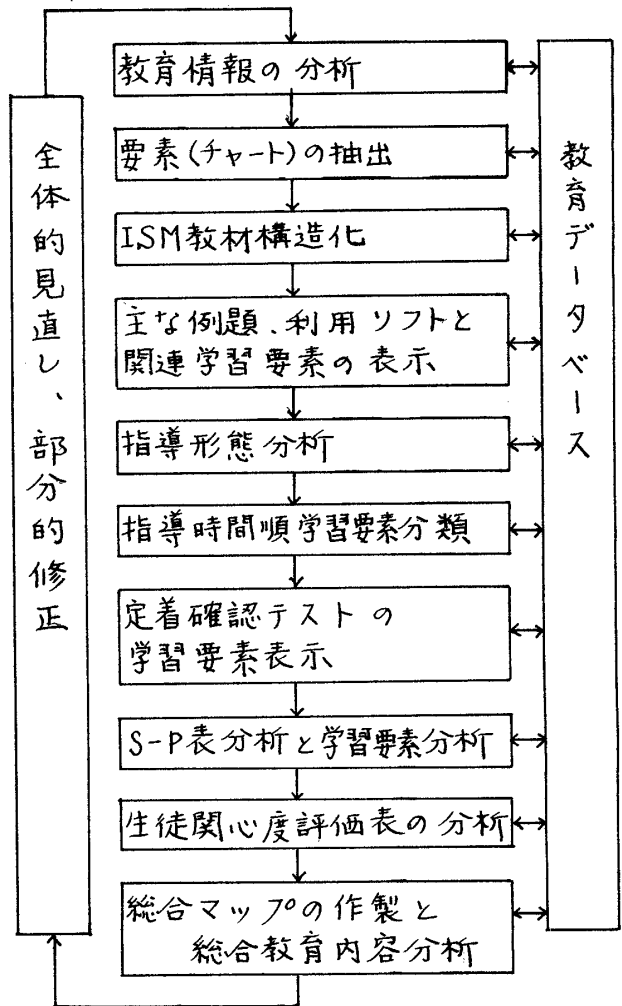 教育情報の分析
要素(チャート)の抽出
ISM教材構造化
主な例題、利用ソフトと
関連学習要素の表示
指導形態分析
指導時間順学習要素分類
定着確認テストの
学習要素表示
S-P表分析と学習要素分析
生徒関心度評価表の分析
総合マップの作製と
総合教育内容分析
全体的見直し、部分的修正
教育データベース